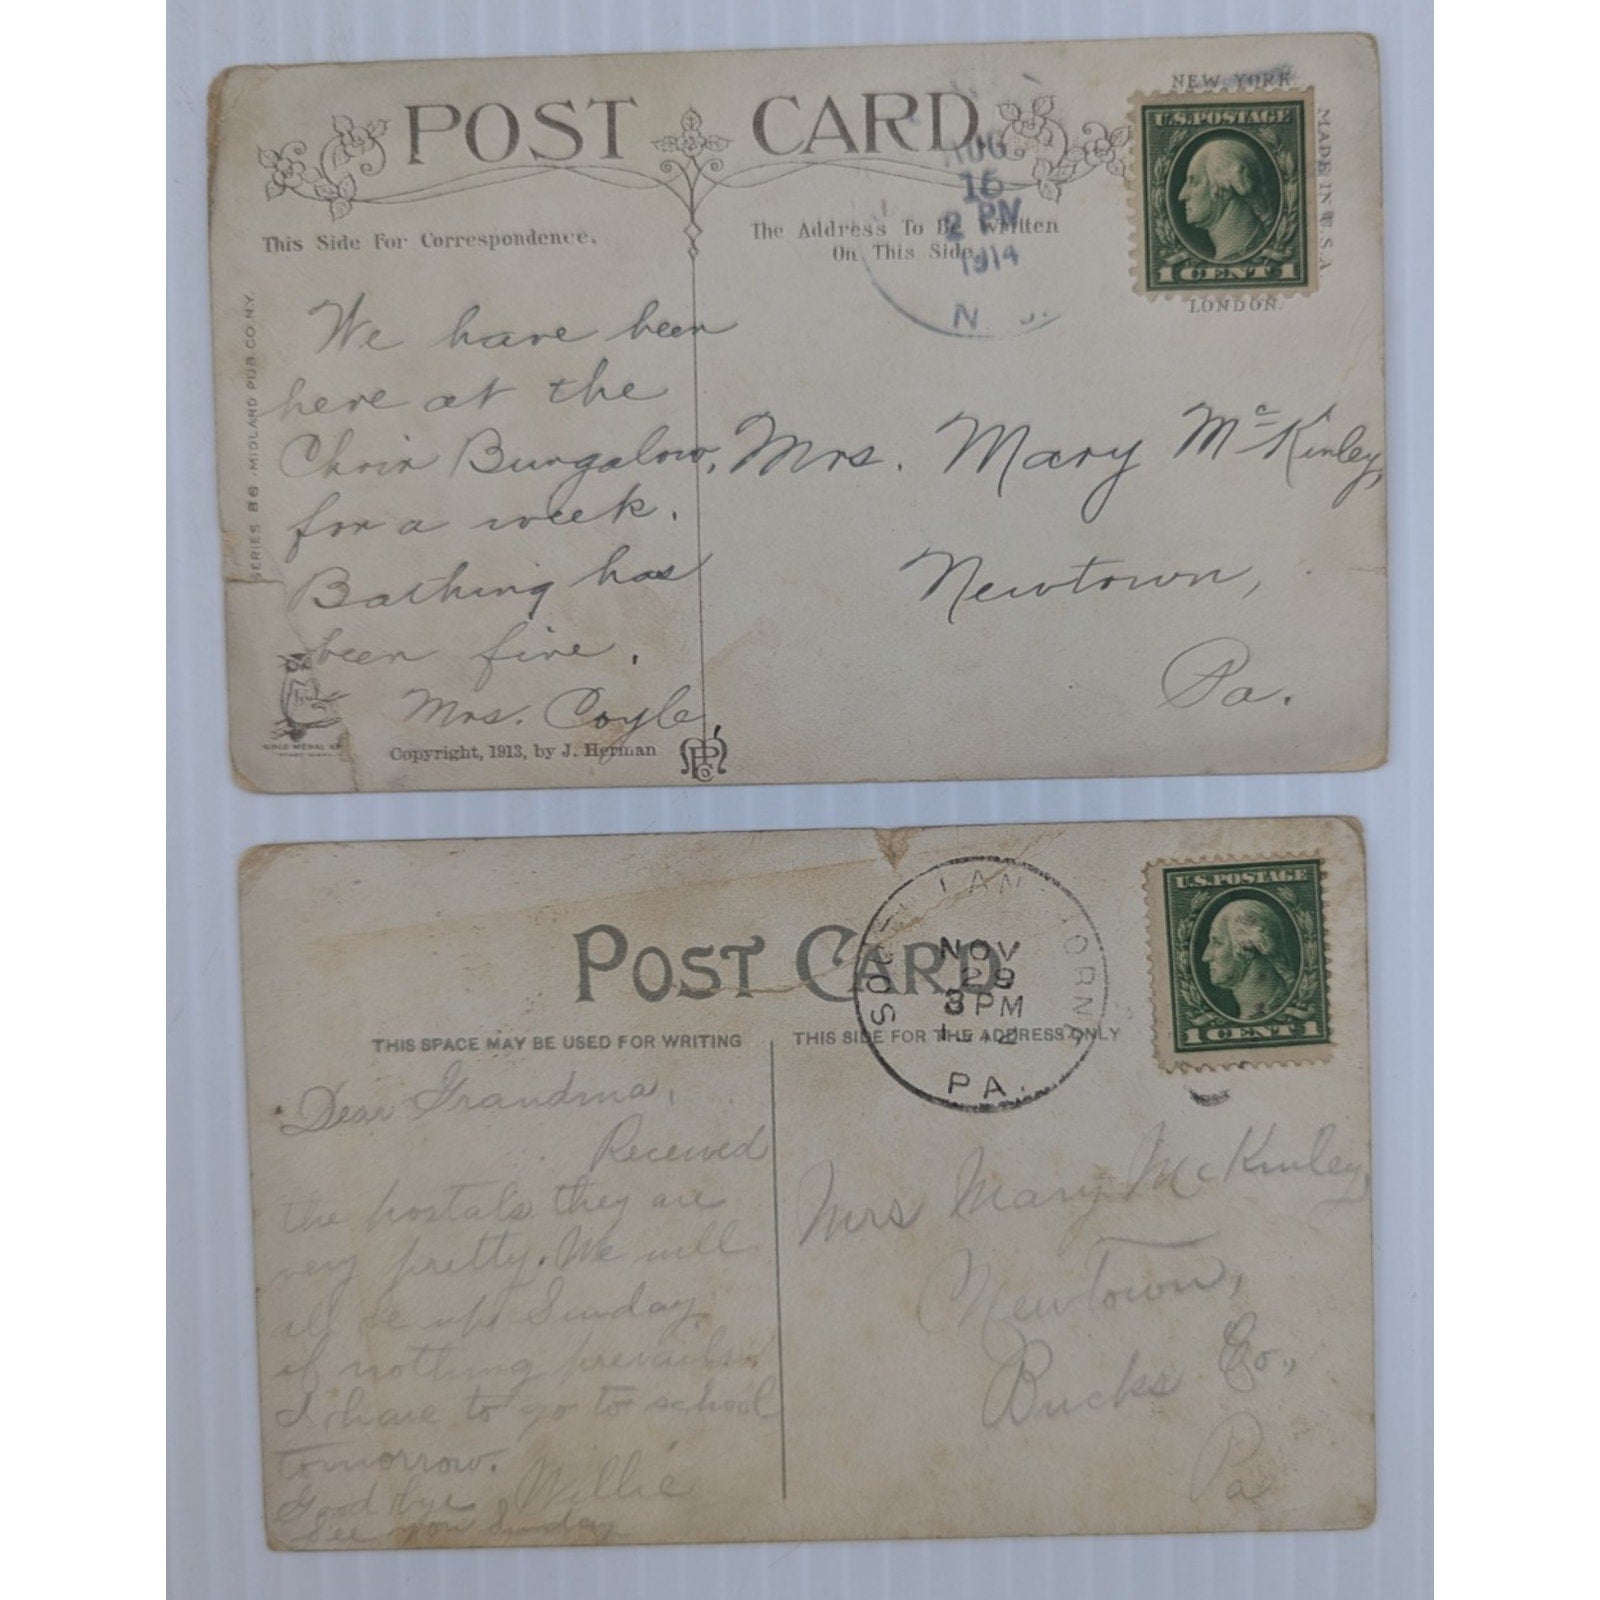 NEW YORK
POST CARD
U.S. POSTAGE
1 CENT 1
MADE IN U.S.A.
LONDON.
AUG
15
2 PM
1914
N. J.
This Side For Correspondence.
The Address To Be Written
On This Side
SERIES 86 · MIDLAND PUB. CO. N.Y.
We have been
here at the
Choir Bungalow,
for a week.
Bathing has
been fine.
Mrs. Coyle,
Mrs. Mary McKinley,
Newtown,
Pa.
GOLD MEDAL ART
Copyright, 1913, by J. Herman
POST CARD
U.S. POSTAGE
1 CENT 1
SOUTH LANGHORNE
NOV
29
3 PM
PA.
THIS SPACE MAY BE USED FOR WRITING
THIS SIDE FOR THE ADDRESS ONLY
Dear Grandma,
Received
the postals they are
very pretty. We will
all be up Sunday
if nothing prevails.
I have to go to school
tomorrow.
Good bye Willie
See you Sunday
Mrs Mary McKinley,
Newtown,
Bucks Co.,
Pa